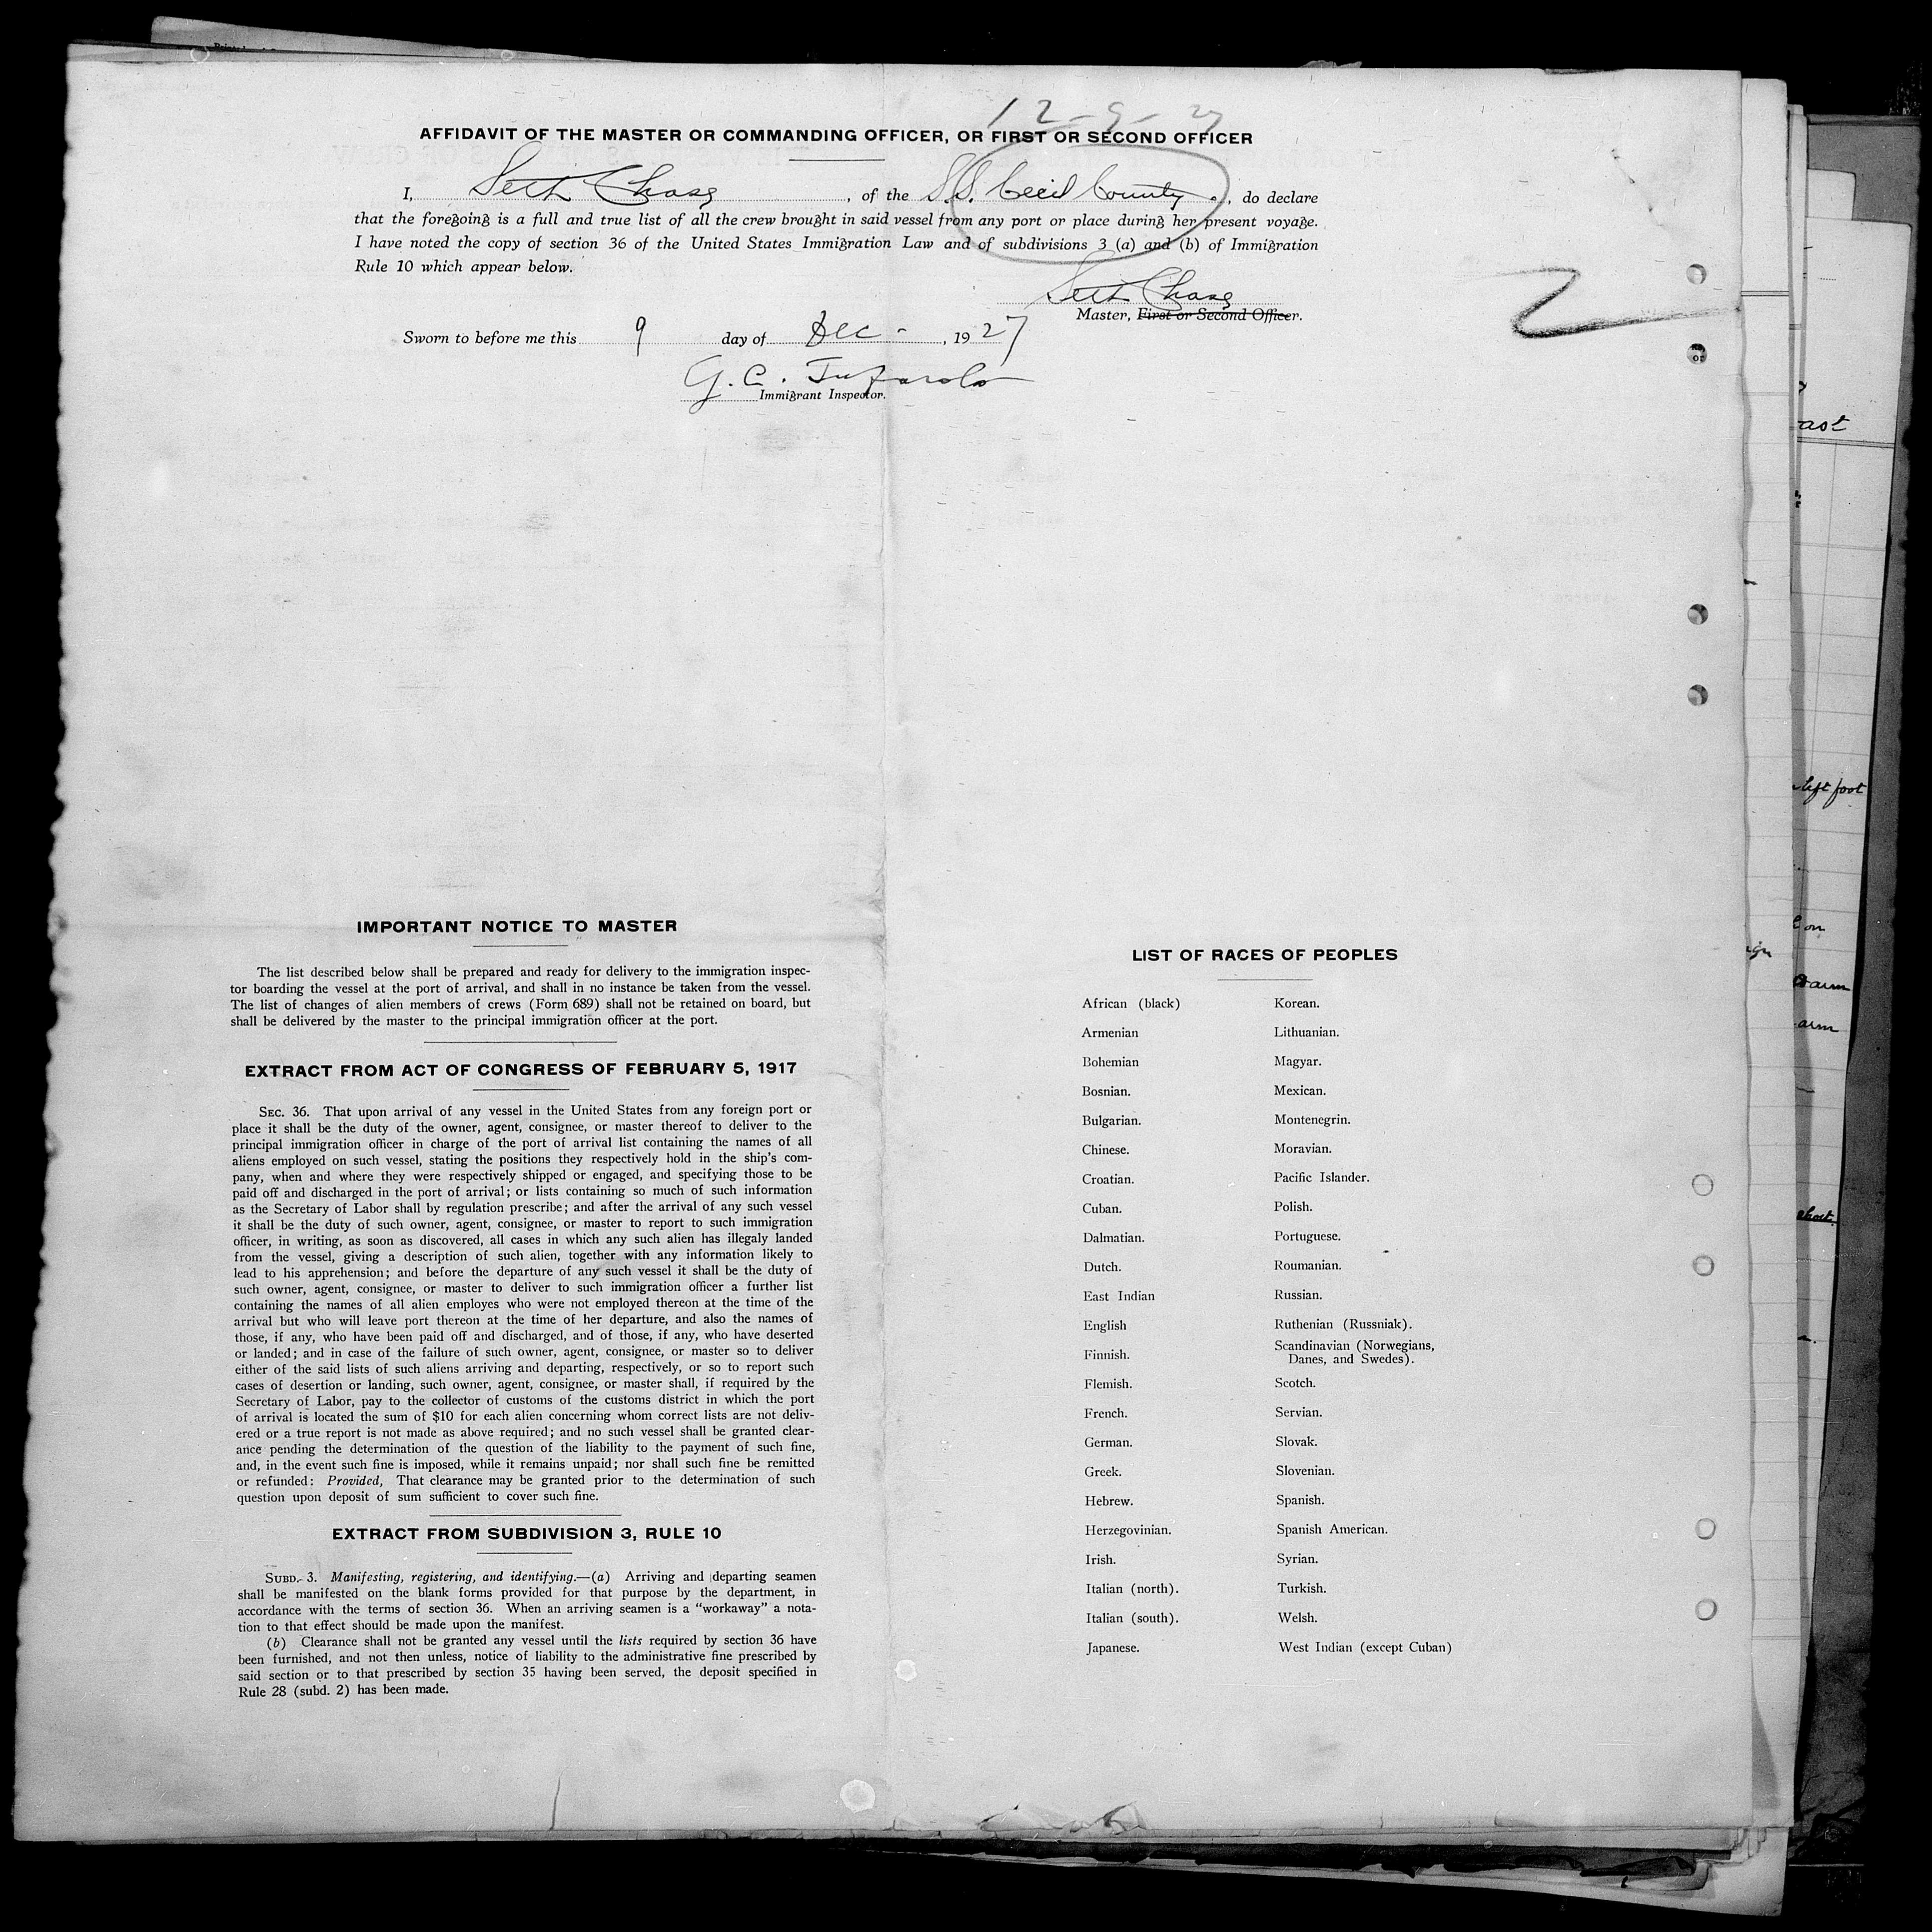 12-9-27
AFFIDAVIT OF THE MASTER OR COMMANDING OFFICER, OR FIRST OR SECOND OFFICER
I, Seth Chase, of the S.S. Cecil County, do declare
that the foregoing is a full and true list of all the crew brought in said vessel from any port or place during her present voyage.
I have noted the copy of section 36 of the United States Immigration Law and of subdivisions 3 (a) and (b) of Immigration
Rule 10 which appear below.
Seth Chase
Master, First or Second Officer.
Sworn to before me this 9 day of Dec - , 1927
G. C.
Immigrant Inspector.
ast
left foot
on
arm
arm
IMPORTANT NOTICE TO MASTER
The list described below shall be prepared and ready for delivery to the immigration inspec-
tor boarding the vessel at the port of arrival, and shall in no instance be taken from the vessel.
The list of changes of alien members of crews (Form 689) shall not be retained on board, but
shall be delivered by the master to the principal immigration officer at the port.
EXTRACT FROM ACT OF CONGRESS OF FEBRUARY 5, 1917
SEC. 36. That upon arrival of any vessel in the United States from any foreign port or
place it shall be the duty of the owner, agent, consignee, or master thereof to deliver to the
principal immigration officer in charge of the port of arrival list containing the names of all
aliens employed on such vessel, stating the positions they respectively hold in the ship's com-
pany, when and where they were respectively shipped or engaged, and specifying those to be
paid off and discharged in the port of arrival; or lists containing so much of such information
as the Secretary of Labor shall by regulation prescribe; and after the arrival of any such vessel
it shall be the duty of such owner, agent, consignee, or master to report to such immigration
officer, in writing, as soon as discovered, all cases in which any such alien has illegaly landed
from the vessel, giving a description of such alien, together with any information likely to
lead to his apprehension; and before the departure of any such vessel it shall be the duty of
such owner, agent, consignee, or master to deliver to such immigration officer a further list
containing the names of all alien employes who were not employed thereon at the time of the
arrival but who will leave port thereon at the time of her departure, and also the names of
those, if any, who have been paid off and discharged, and of those, if any, who have deserted
or landed; and in case of the failure of such owner, agent, consignee, or master so to deliver
either of the said lists of such aliens arriving and departing, respectively, or so to report such
cases of desertion or landing, such owner, agent, consignee, or master shall, if required by the
Secretary of Labor, pay to the collector of customs of the customs district in which the port
of arrival is located the sum of $10 for each alien concerning whom correct lists are not deliv-
ered or a true report is not made as above required; and no such vessel shall be granted clear-
ance pending the determination of the question of the liability to the payment of such fine,
and, in the event such fine is imposed, while it remains unpaid; nor shall such fine be remitted
or refunded: Provided, That clearance may be granted prior to the determination of such
question upon deposit of sum sufficient to cover such fine.
EXTRACT FROM SUBDIVISION 3, RULE 10
SUBD. 3. Manifesting, registering, and identifying.—(a) Arriving and departing seamen
shall be manifested on the blank forms provided for that purpose by the department, in
accordance with the terms of section 36. When an arriving seamen is a "workaway" a nota-
tion to that effect should be made upon the manifest.
(b) Clearance shall not be granted any vessel until the lists required by section 36 have
been furnished, and not then unless, notice of liability to the administrative fine prescribed by
said section or to that prescribed by section 35 having been served, the deposit specified in
Rule 28 (subd. 2) has been made.
LIST OF RACES OF PEOPLES
African (black) Korean.
Armenian Lithuanian.
Bohemian Magyar.
Bosnian. Mexican.
Bulgarian. Montenegrin.
Chinese. Moravian.
Croatian. Pacific Islander.
Cuban. Polish.
Dalmatian. Portuguese.
Dutch. Roumanian.
East Indian Russian.
English Ruthenian (Russniak).
Finnish. Scandinavian (Norwegians,
Danes, and Swedes).
Flemish. Scotch.
French. Servian.
German. Slovak.
Greek. Slovenian.
Hebrew. Spanish.
Herzegovinian. Spanish American.
Irish. Syrian.
Italian (north). Turkish.
Italian (south). Welsh.
Japanese. West Indian (except Cuban)